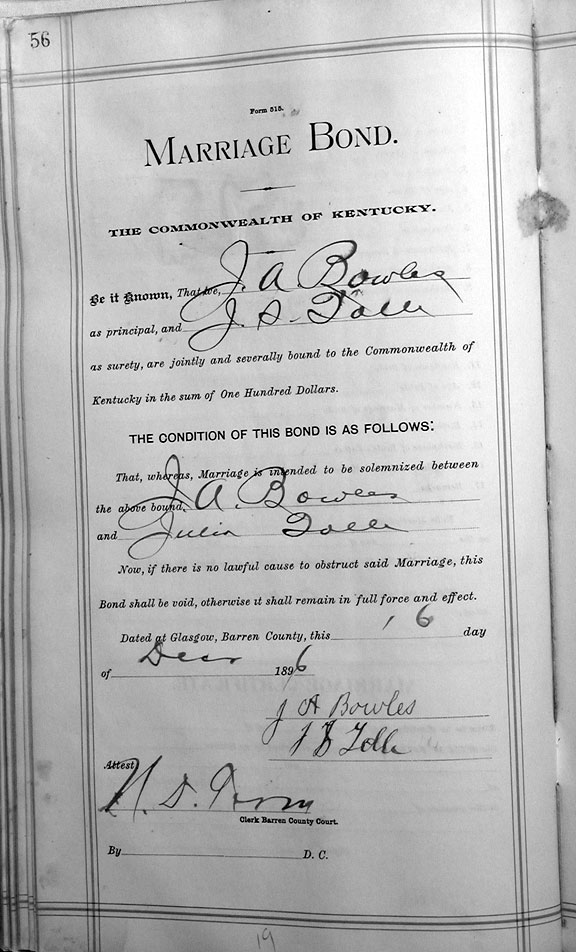 56
Form 515.
MARRIAGE BOND.
THE COMMONWEALTH OF KENTUCKY.
Be it Known, That we, J. A Bowles
as principal, and J. S. Tolle
as surety, are jointly and severally bound to the Commonwealth of
Kentucky in the sum of One Hundred Dollars.
THE CONDITION OF THIS BOND IS AS FOLLOWS:
That, whereas, Marriage is intended to be solemnized between
the above bound, J. A. Bowles
and Julia Tolle
Now, if there is no lawful cause to obstruct said Marriage, this
Bond shall be void, otherwise it shall remain in full force and effect.
Dated at Glasgow, Barren County, this 16 day
of Decr 1896
J A Bowles
Tolle
Attest
Clerk Barren County Court.
By D. C.
19